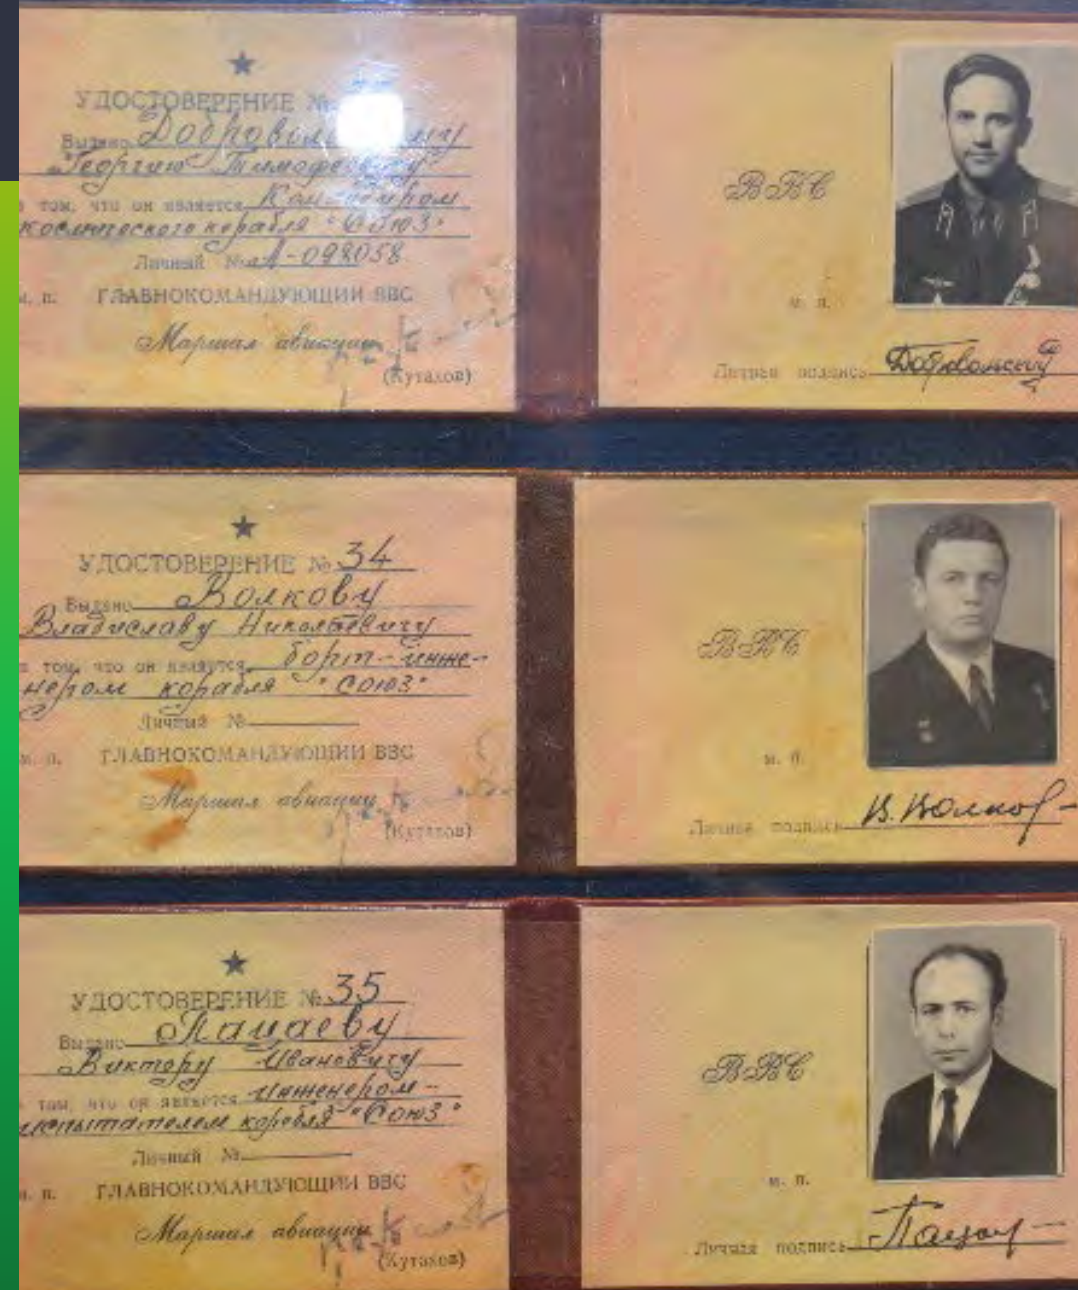 УДОСТОВЕРЕНИЕ №
Выдано
Георгию Тимофеевичу
том, что он является Командиром
космического корабля "Союз"
Личный № А-098058
м. п. ГЛАВНОКОМАНДУЮЩИЙ ВВС
Маршал авиации
(Кутахов)
ВВС
м. п.
Личная подпись Добровольский
УДОСТОВЕРЕНИЕ № 34
Выдано Волкову
Владиславу Николаевичу
том, что он является борт-инже-
нером корабля "Союз"
Личный №
м. п. ГЛАВНОКОМАНДУЮЩИЙ ВВС
Маршал авиации
(Кутахов)
ВВС
м. п.
Личная подпись В. Волков
УДОСТОВЕРЕНИЕ № 35
Выдано Пацаеву
Виктору Ивановичу
том, что он является инженером-
испытателем корабля "Союз"
Личный №
м. п. ГЛАВНОКОМАНДУЮЩИЙ ВВС
Маршал авиации
(Кутахов)
ВВС
м. п.
Личная подпись Пацаев